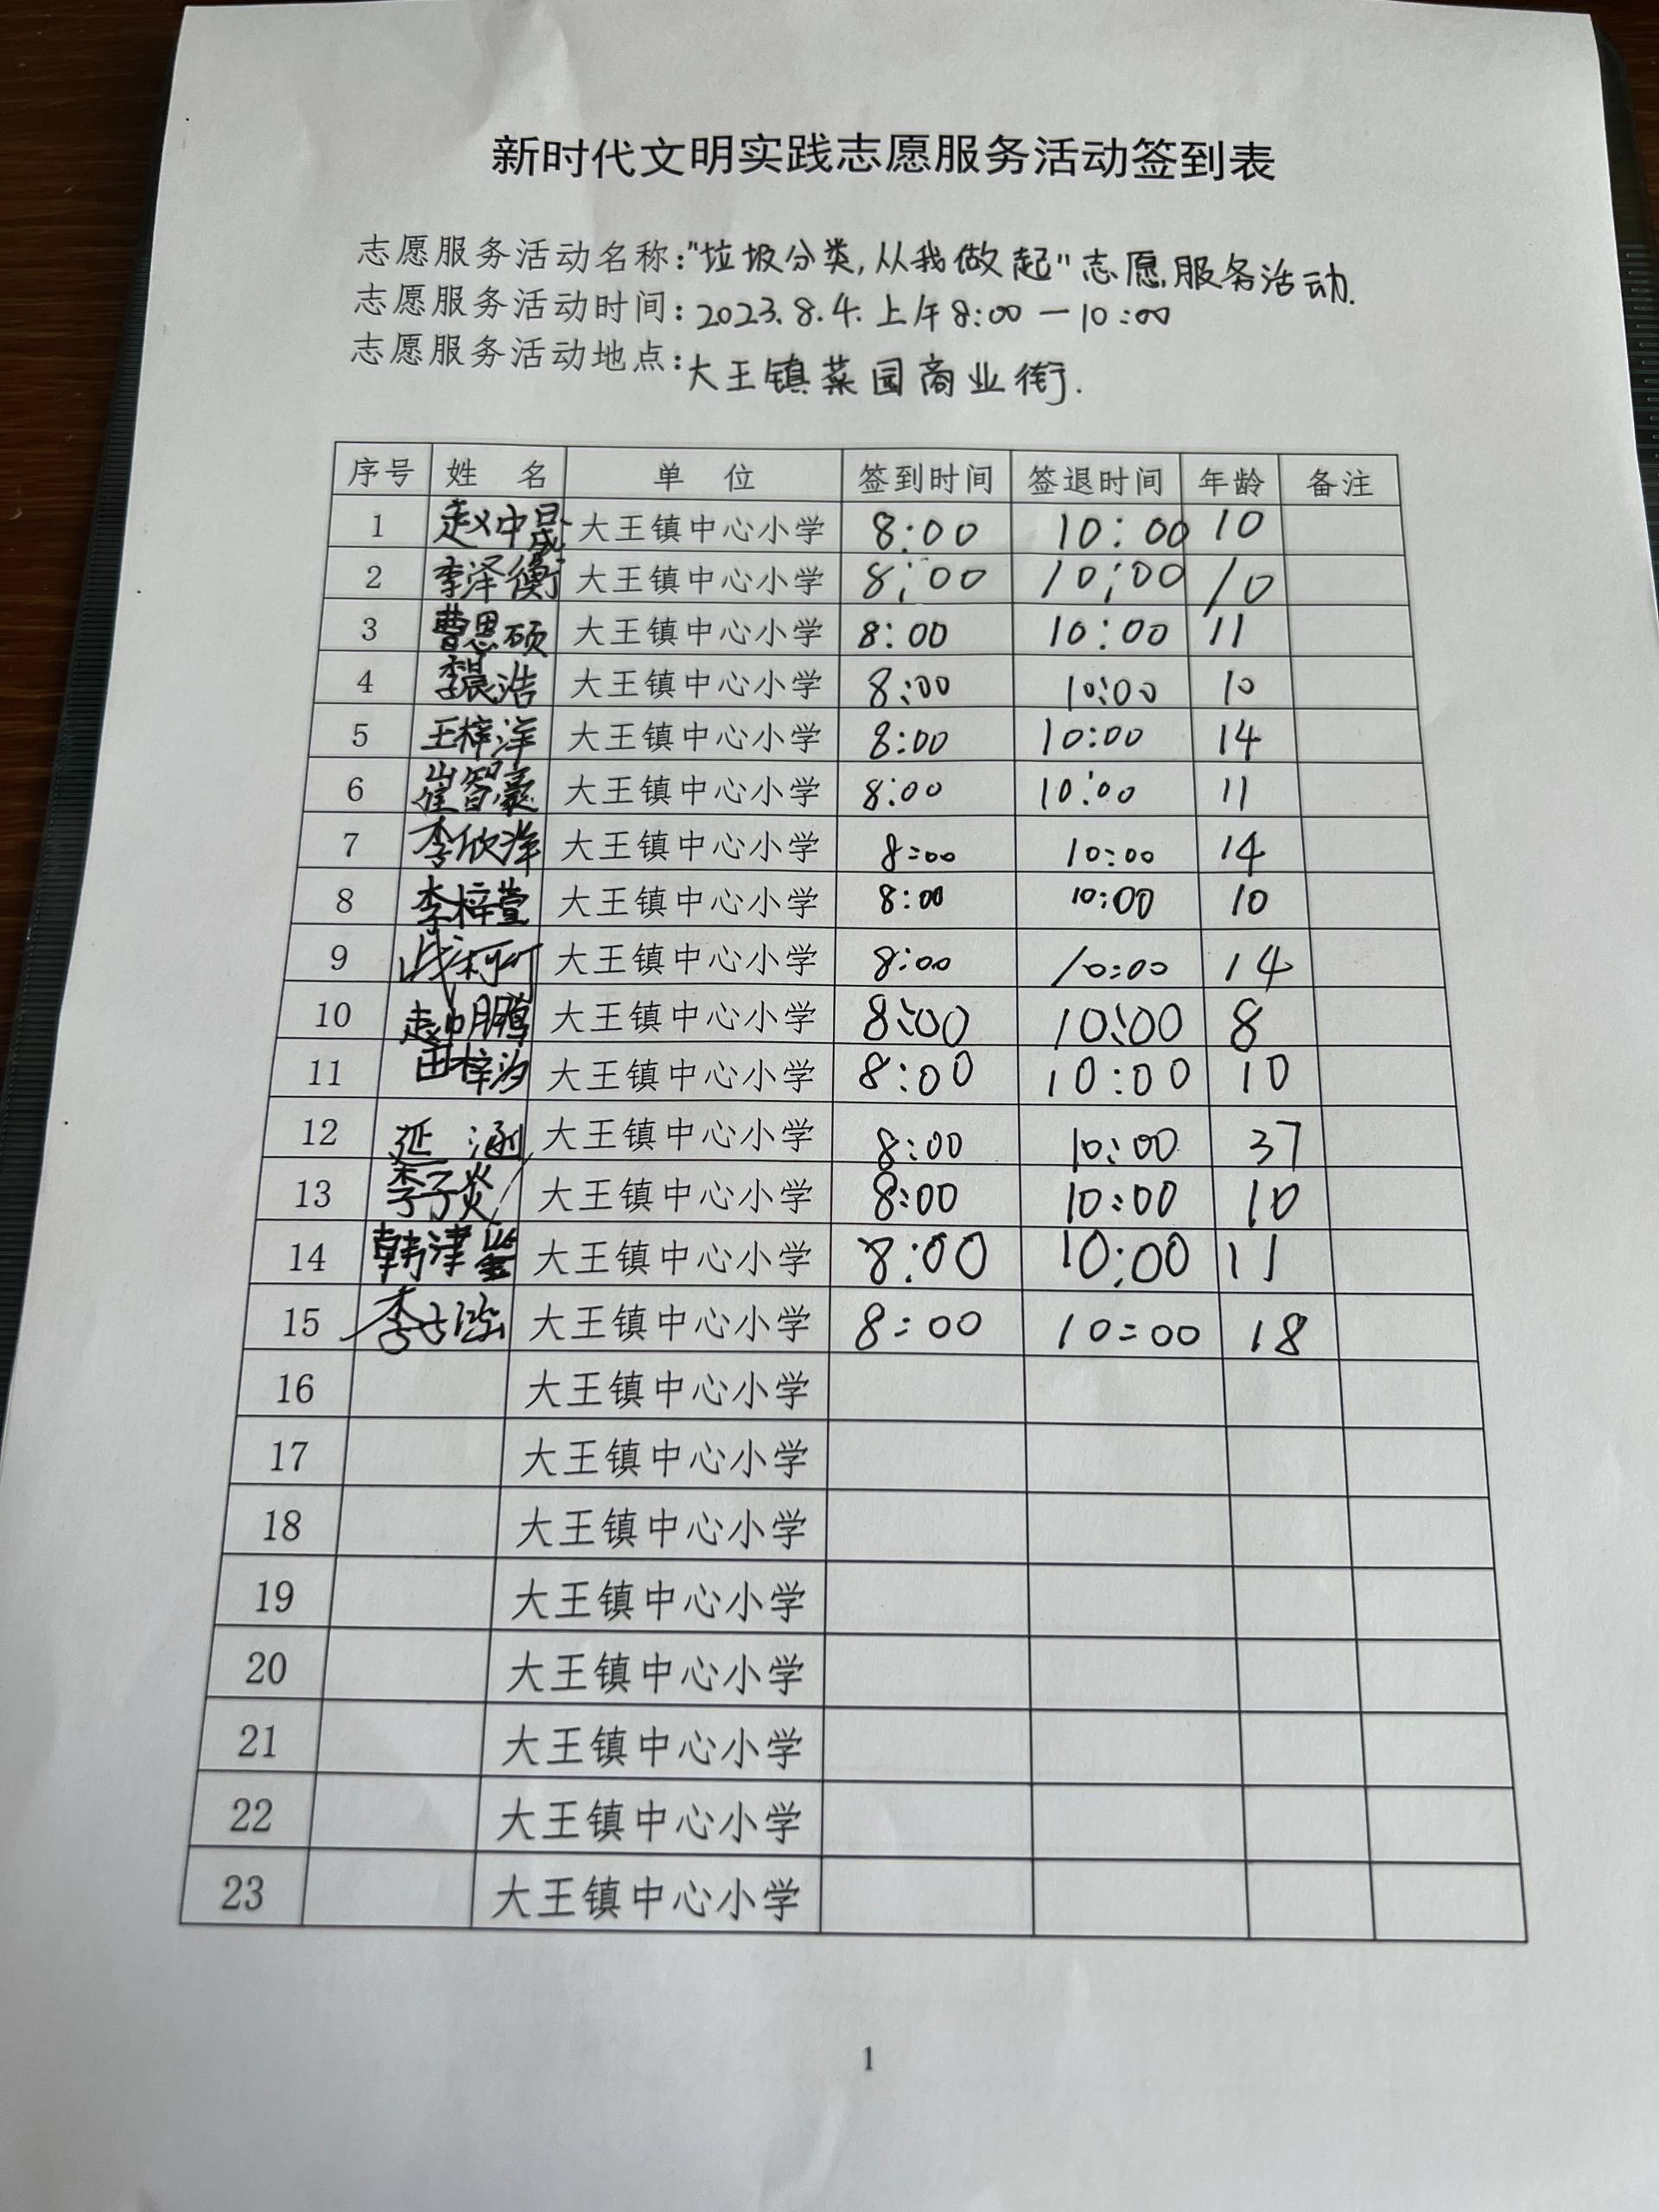 新时代文明实践志愿服务活动签到表
志愿服务活动名称:"垃圾分类,从我做起"志愿服务活动.
志愿服务活动时间:2023.8.4.上午8:00—10:00
志愿服务活动地点:大王镇菜园商业街.
序号 姓 名 单 位 签到时间 签退时间 年龄 备注
1 赵中晟 大王镇中心小学 8:00 10:00 10
2 李泽衡 大王镇中心小学 8:00 10:00 10
3 曹恩硕 大王镇中心小学 8:00 10:00 11
4 李晨浩 大王镇中心小学 8:00 10:00 10
5 王梓洋 大王镇中心小学 8:00 10:00 14
6 崔智豪 大王镇中心小学 8:00 10:00 11
7 李欣洋 大王镇中心小学 8:00 10:00 14
8 李梓萱 大王镇中心小学 8:00 10:00 10
9 大王镇中心小学 8:00 10:00 14
10 大王镇中心小学 8:00 10:00 8
11 田梓汐 大王镇中心小学 8:00 10:00 10
12 延 涵 大王镇中心小学 8:00 10:00 37
13 李子炎 大王镇中心小学 8:00 10:00 10
14 韩津 大王镇中心小学 8:00 10:00 11
15 李 大王镇中心小学 8:00 10:00 18
16 大王镇中心小学
17 大王镇中心小学
18 大王镇中心小学
19 大王镇中心小学
20 大王镇中心小学
21 大王镇中心小学
22 大王镇中心小学
23 大王镇中心小学
1